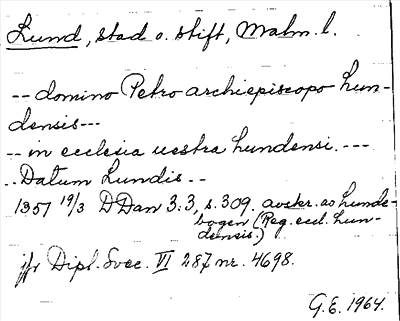 Lund, stad o. stift, Malm. l.
-- domino Petro archiepiscopo Lun-
densis ---
-- in ecclesia uestra Lundensi. ---
.. Datum Lundis --
1357 19/3 DDan 3:3, s. 309. avskr. as Lunde-
bogen (Reg. eccl. Lun-
densis.)
jfr Dipl. Svec. VI 287 nr. 4698.
G.E. 1964.